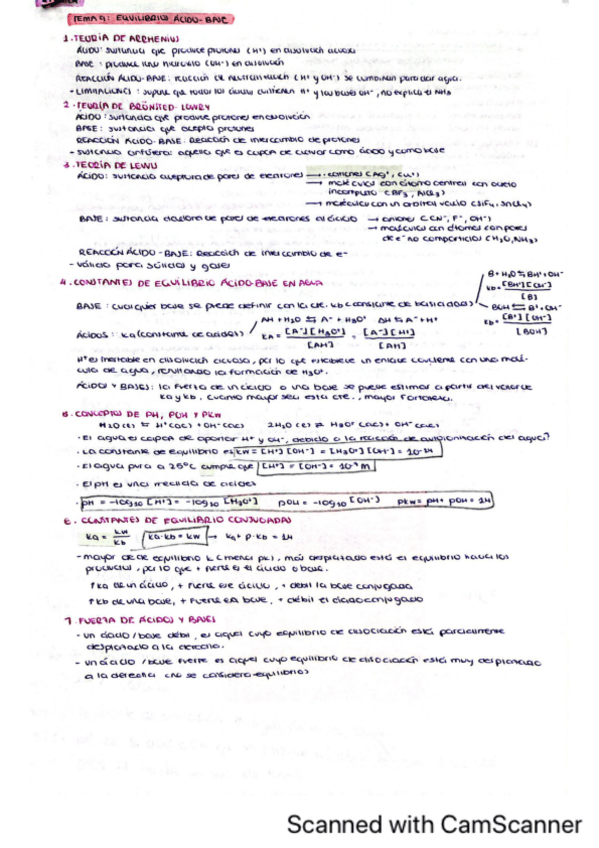 TEMA 9: EQUILIBRIO ÁCIDO-BASE
1. TEORÍA DE ARRHENIUS
ÁCIDO: sustancia que produce protones (H⁺) en disolución acuosa
BASE: produce iones hidroxilo (OH⁻) en disolución
REACCIÓN ÁCIDO-BASE: reacción de neutralización (H⁺ y OH⁻) se combinan para dar agua.
- LIMITACIONES: supone que todos los ácidos contienen H⁺ y las bases OH⁻, no explica el NH₃
2. TEORÍA DE BRÖNSTED-LOWRY
ÁCIDO: sustancia que produce protones en disolución
BASE: sustancia que acepta protones
REACCIÓN ÁCIDO-BASE: Reacción de intercambio de protones
- sustancia anfótera: aquella que es capaz de actuar como ácido y como base
3. TEORÍA DE LEWIS
ÁCIDO: sustancia aceptora de pares de electrones → cationes (Ag⁺, Cu²⁺)
→ moléculas con átomo central con octeto incompleto (BF₃, AlCl₃)
→ moléculas con un orbital vacío (SiF₄, SnCl₄)
BASE: sustancia dadora de pares de electrones al ácido → aniones (CN⁻, F⁻, OH⁻)
→ moléculas con átomos con pares de e⁻ no compartidos (H₂O, NH₃)
REACCIÓN ÁCIDO-BASE: Reacción de intercambio de e⁻
- válida para sólidos y gases
4. CONSTANTES DE EQUILIBRIO ÁCIDO-BASE EN AGUA
B + H₂O ⇆ BH⁺ + OH⁻
Kb = [BH⁺][OH⁻] / [B]
BASE: cualquier base se puede definir con la cte. Kb (constante de basicidad)
BOH ⇆ B⁺ + OH⁻
Kb = [B⁺][OH⁻] / [BOH]
AH + H₂O ⇆ A⁻ + H₃O⁺ AH ⇆ A⁻ + H⁺
ÁCIDOS: Ka (constante de acidez) KA = [A⁻][H₃O⁺] / [AH] = [A⁻][H⁺] / [AH]
H⁺ es inestable en disolución acuosa, por lo que establece un enlace covalente con una molé-
cula de agua, resultando la formación de H₃O⁺.
ÁCIDOS Y BASES: la fuerza de un ácido o una base se puede estimar a partir del valor de
Ka y Kb, cuanto mayor sea esta cte., mayor fortaleza.
5. CONCEPTO DE PH, POH Y PKW
H₂O (l) ⇆ H⁺ (ac) + OH⁻ (ac) 2H₂O (l) ⇆ H₃O⁺ (ac) + OH⁻ (ac)
· El agua es capaz de aportar H⁺ y OH⁻, debido a la reacción de autoionización del agua?
· La constante de equilibrio es Kw = [H⁺][OH⁻] = [H₃O⁺][OH⁻] = 10⁻¹⁴
· El agua pura a 25°C cumple que [H⁺] = [OH⁻] = 10⁻⁷ M
· El pH es una medida de acidez
· pH = -log₁₀ [H⁺] = -log₁₀ [H₃O⁺] pOH = -log₁₀ [OH⁻] pKw = pH + pOH = 14
6. CONSTANTES DE EQUILIBRIO CONJUGADAS
Ka = Kw / Kb Ka·Kb = Kw →
- mayor cte de equilibrio K (menor pK), más desplazado está el equilibrio hacia los
productos, por lo que + fuerte es el ácido o base.
↑Ka de un ácido, + fuerte ese ácido, + débil la base conjugada
↑Kb de una base, + fuerte esa base, + débil el ácido conjugado
7. FUERZA DE ÁCIDOS Y BASES
- un ácido/base débil, es aquel cuyo equilibrio de disociación está parcialmente
desplazado a la derecha.
- un ácido/base fuerte es aquel cuyo equilibrio de disociación está muy desplazado
a la derecha (no se considera equilibrio)
Scanned with CamScanner